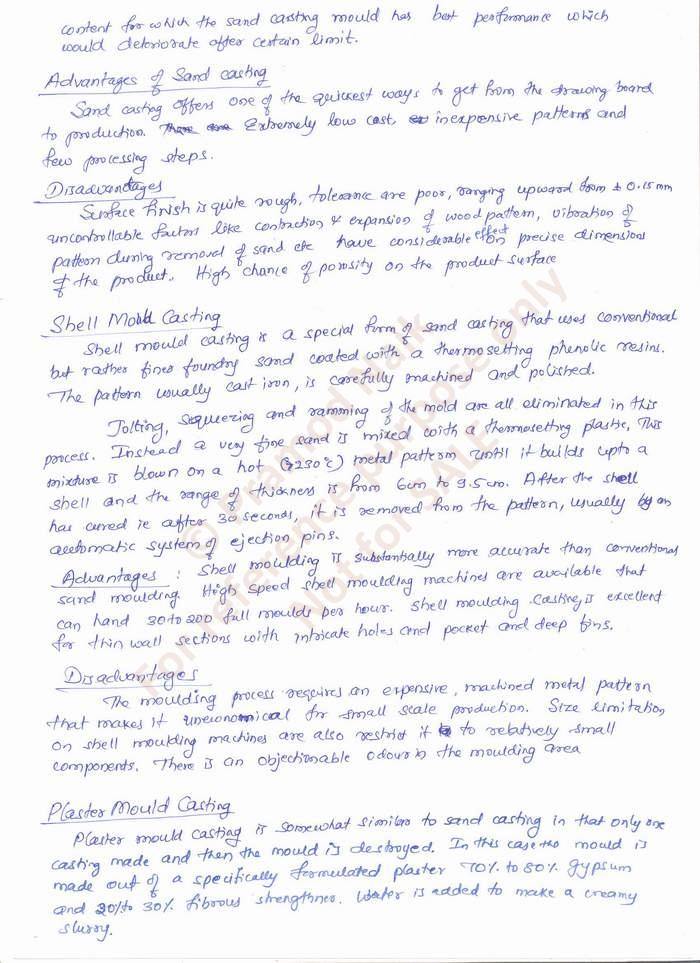 content for which the sand casting mould has best performance which
would deteriorate after certain limit.
Advantages of Sand casting
Sand casting offers one of the quickest ways to get from the drawing board
to production. There are Extremely low cost, inexpensive patterns and
few processing steps.
Disadvantages
Surface finish is quite rough, tolerance are poor, ranging upward from ± 0.15mm
uncontrollable factors like contraction & expansion of wood pattern, vibration of
pattern during removal of sand etc have considerable effect on precise dimensions
of the product. High chance of porosity on the product surface
Shell Mould Casting
Shell mould casting is a special form of sand casting that uses conventional
but rather finer foundry sand coated with a thermosetting phenolic resins.
The pattern usually cast iron, is carefully machined and polished.
Jolting, squeezing and ramming of the mold are all eliminated in this
process. Instead a very fine sand is mixed with a thermosetting plastic, This
mixture is blown on a hot (>230°c) metal pattern until it builds upto a
shell and the range of thickness is from 6cm to 9.5cm. After the shell
has cured ie after 30 seconds, it is removed from the pattern, usually by an
automatic system of ejection pins.
Advantages : Shell moulding is substantially more accurate than conventional
sand moulding. High speed shell moulding machines are available that
can hand 30 to 200 full moulds per hour. Shell moulding casting is excellent
for thin wall sections with intricate holes and pocket and deep fins.
Disadvantages
The moulding process requires an expensive, machined metal pattern
that makes it uneconomical for small scale production. Size limitation
on shell moulding machines are also restrict it to relatively small
components. There is an objectionable odour in the moulding area
Plaster Mould Casting
Plaster mould casting is somewhat similar to sand casting in that only one
casting made and then the mould is destroyed. In this case the mould is
made out of a specifically formulated plaster 70% to 80% gypsum
and 20% to 30% fibrous strengthner. Water is added to make a creamy
slurry.
© Pramod Naik
For reference purpose only
Not for SALE